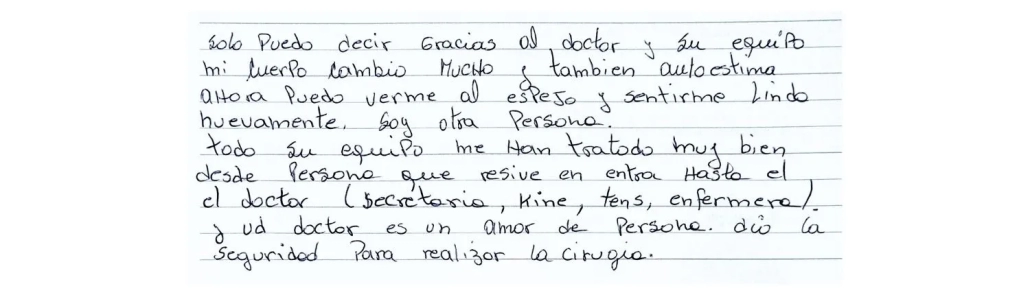 solo Puedo decir Gracias al doctor y su equipo
mi cuerpo cambio MUCHO y tambien autoestima
aHora Puedo verme al espeJo y sentirme Linda
nuevamente. soy otra Persona.
todo su equipo me Han tratado muy bien
desde Persona que resive en entra Hasta el
el doctor (secretaria, Kine, tens, enfermera).
y ud doctor es un amor de Persona. dio la
seguridad Para realizar la cirugia.